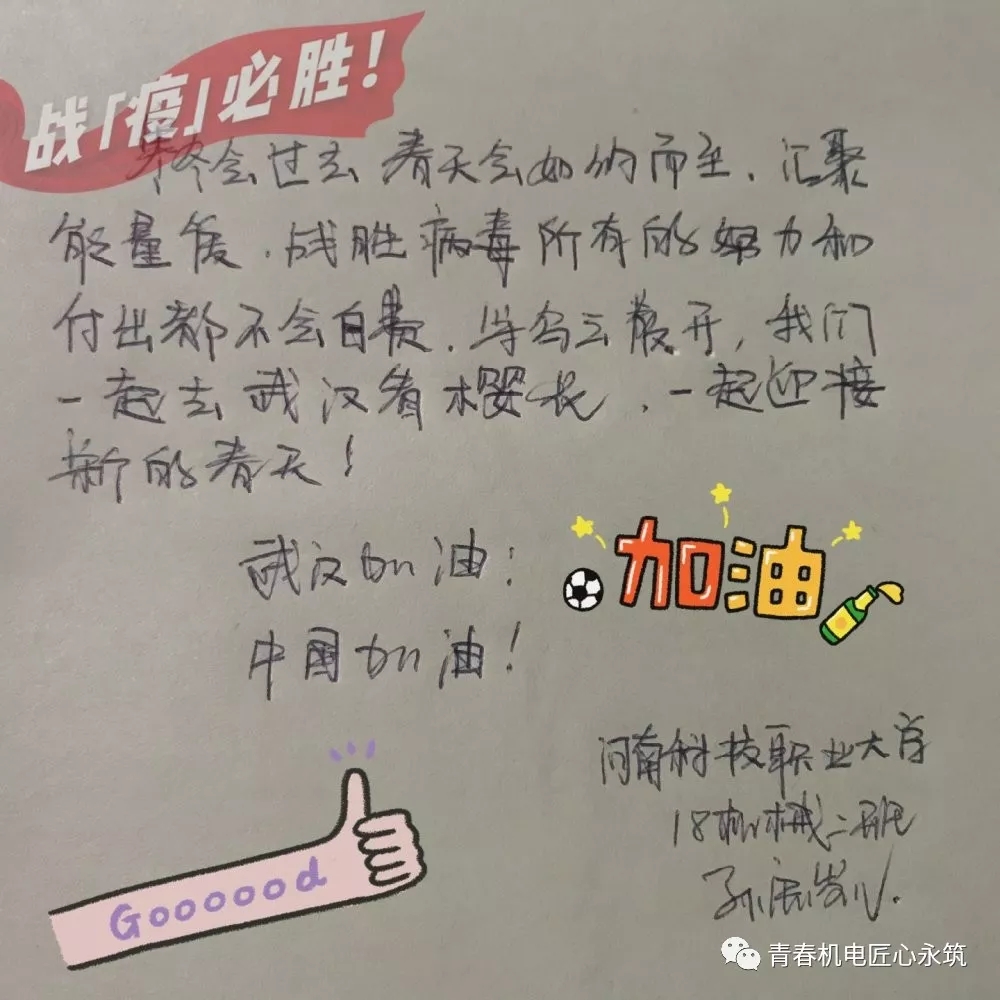 战「疫」必胜！
终会过去 春天会如约而至，汇聚
能量后，战胜病毒所有的努力和
付出都不会白费，等乌云散开，我们
一起去武汉看樱花，一起迎接
新的春天！
武汉加油！
中国加油！
加油
河南科技职业大学
18机械二班
孙
Gooooood
青春机电匠心永筑